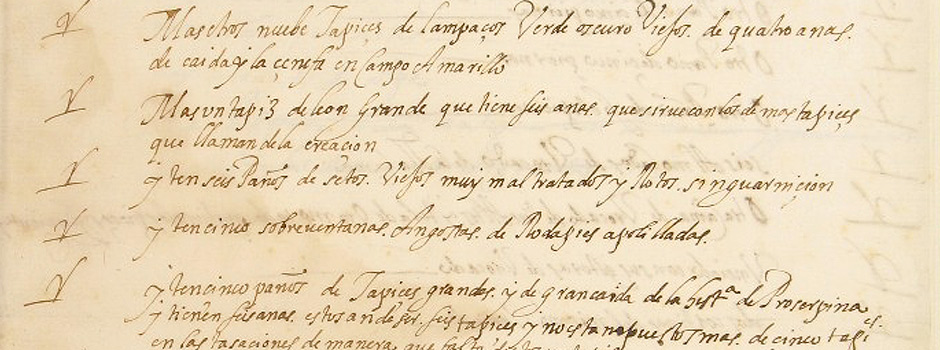 Mas otros nuebe Tapices de lampaços Verde oscuro Viejos. de quatro anas.
de caida y la çenefa en Campo Amarillo
Mas un tapiz de leon Grande que tiene seis anas. que sirue con los demas tapices
que llaman de la creacion
yten seis Paños de setos. Viejos muy mal tratados y Rotos. sin guarniçion
yten cinco sobreventanas. Angostas. de Rodapies apolilladas.
yten cinco paños de Tapices grandes. y de gran caida de la hestª de Proserpina
y tienen seis anas. estos an de ser. seis tapices y no estan puestos mas. de cinco tapices
en las tasaciones de manera que